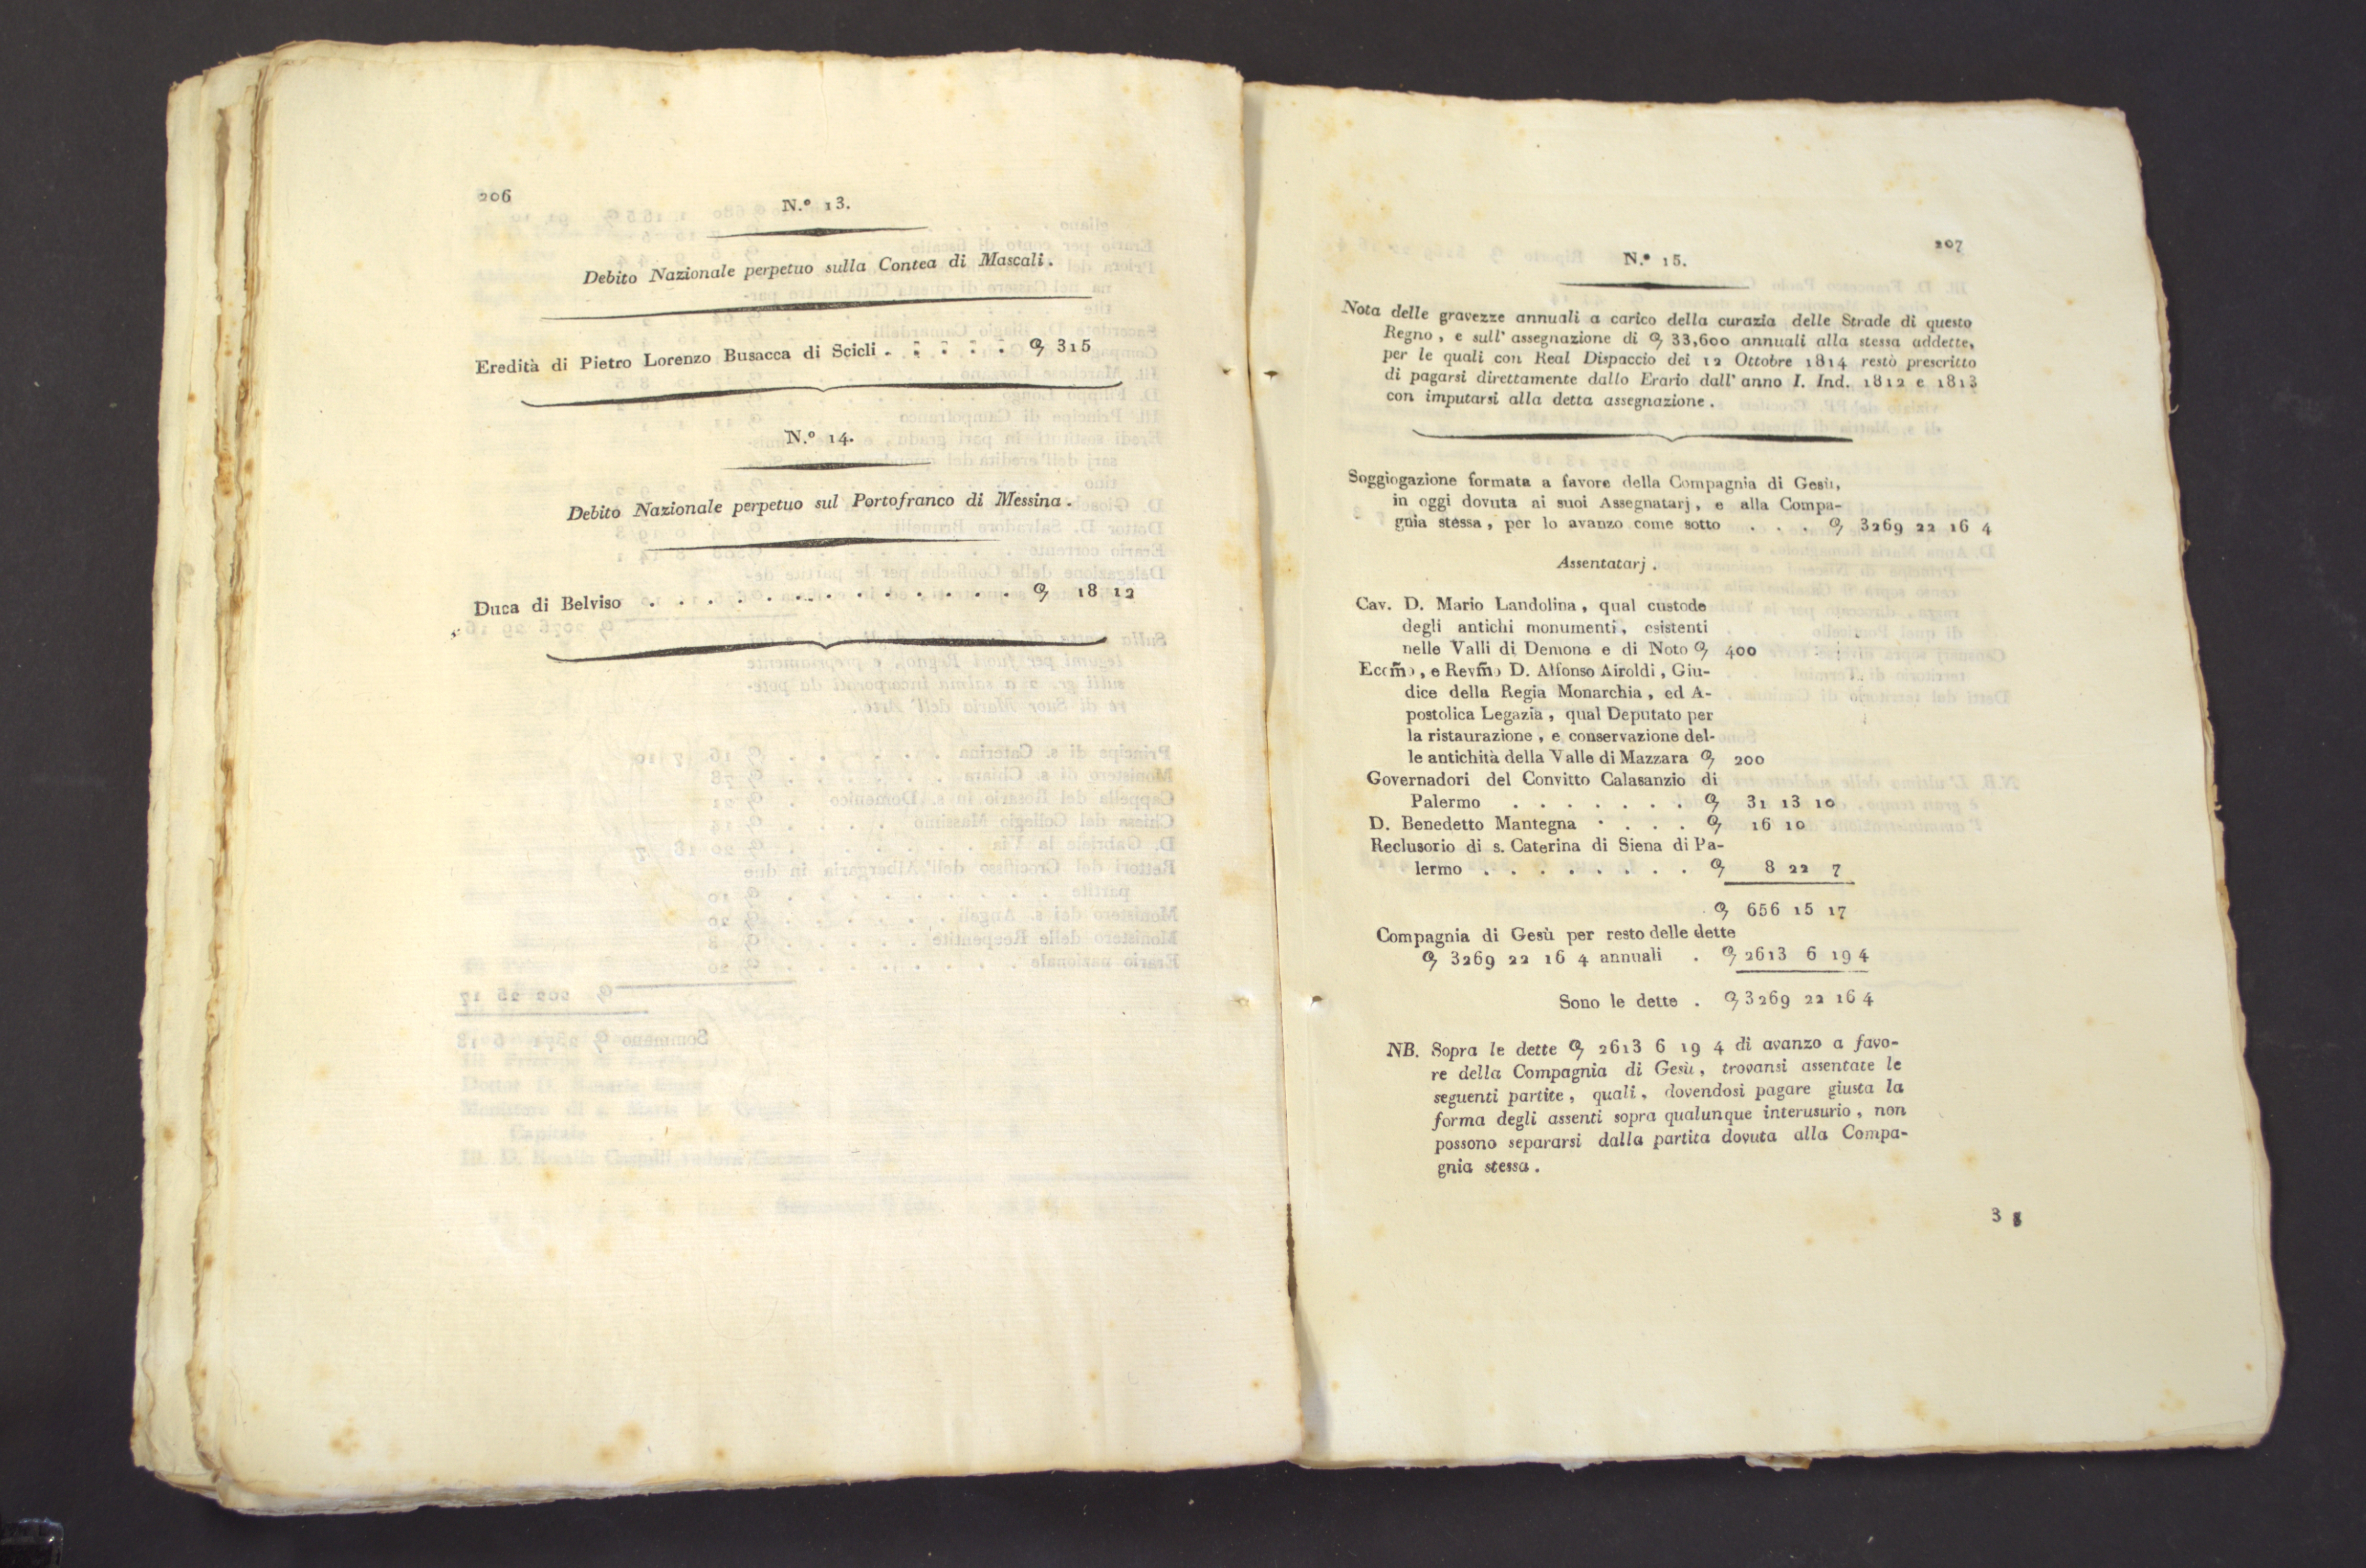 206
N.º 13.
Debito Nazionale perpetuo sulla Contea di Mascali.
Eredità di Pietro Lorenzo Busacca di Scicli . . . . . 315
N.º 14.
Debito Nazionale perpetuo sul Portofranco di Messina.
Duca di Belviso . . . . . . . . . . . . . 18 12
207
N.º 15.
Nota delle gravezze annuali a carico della curazia delle Strade di questo
Regno, e sull' assegnazione di 33,600 annuali alla stessa addette,
per le quali con Real Dispaccio dei 12 Ottobre 1814 restò prescritto
di pagarsi direttamente dallo Erario dall' anno I. Ind. 1812 e 1813
con imputarsi alla detta assegnazione.
Soggiogazione formata a favore della Compagnia di Gesù,
in oggi dovuta ai suoi Assegnatarj, e alla Compa-
gnia stessa, per lo avanzo come sotto . . . 3269 22 16 4
Assentatarj.
Cav. D. Mario Landolina, qual custode
degli antichi monumenti, esistenti
nelle Valli di Demone e di Noto 400
Eccm̃o, e Revm̃o D. Alfonso Airoldi, Giu-
dice della Regia Monarchia, ed A-
postolica Legazia, qual Deputato per
la ristaurazione, e conservazione del-
le antichità della Valle di Mazzara 200
Governadori del Convitto Calasanzio di
Palermo . . . . . . . 31 13 10
D. Benedetto Mantegna . . . . 16 10
Reclusorio di s. Caterina di Siena di Pa-
lermo . . . . . . . . 8 22 7
656 15 17
Compagnia di Gesù per resto delle dette
3269 22 16 4 annuali . 2613 6 19 4
Sono le dette . 3269 22 16 4
NB. Sopra le dette 2613 6 19 4 di avanzo a favo-
re della Compagnia di Gesù, trovansi assentate le
seguenti partite, quali, dovendosi pagare giusta la
forma degli assenti sopra qualunque interusurio, non
possono separarsi dalla partita dovuta alla Compa-
gnia stessa.